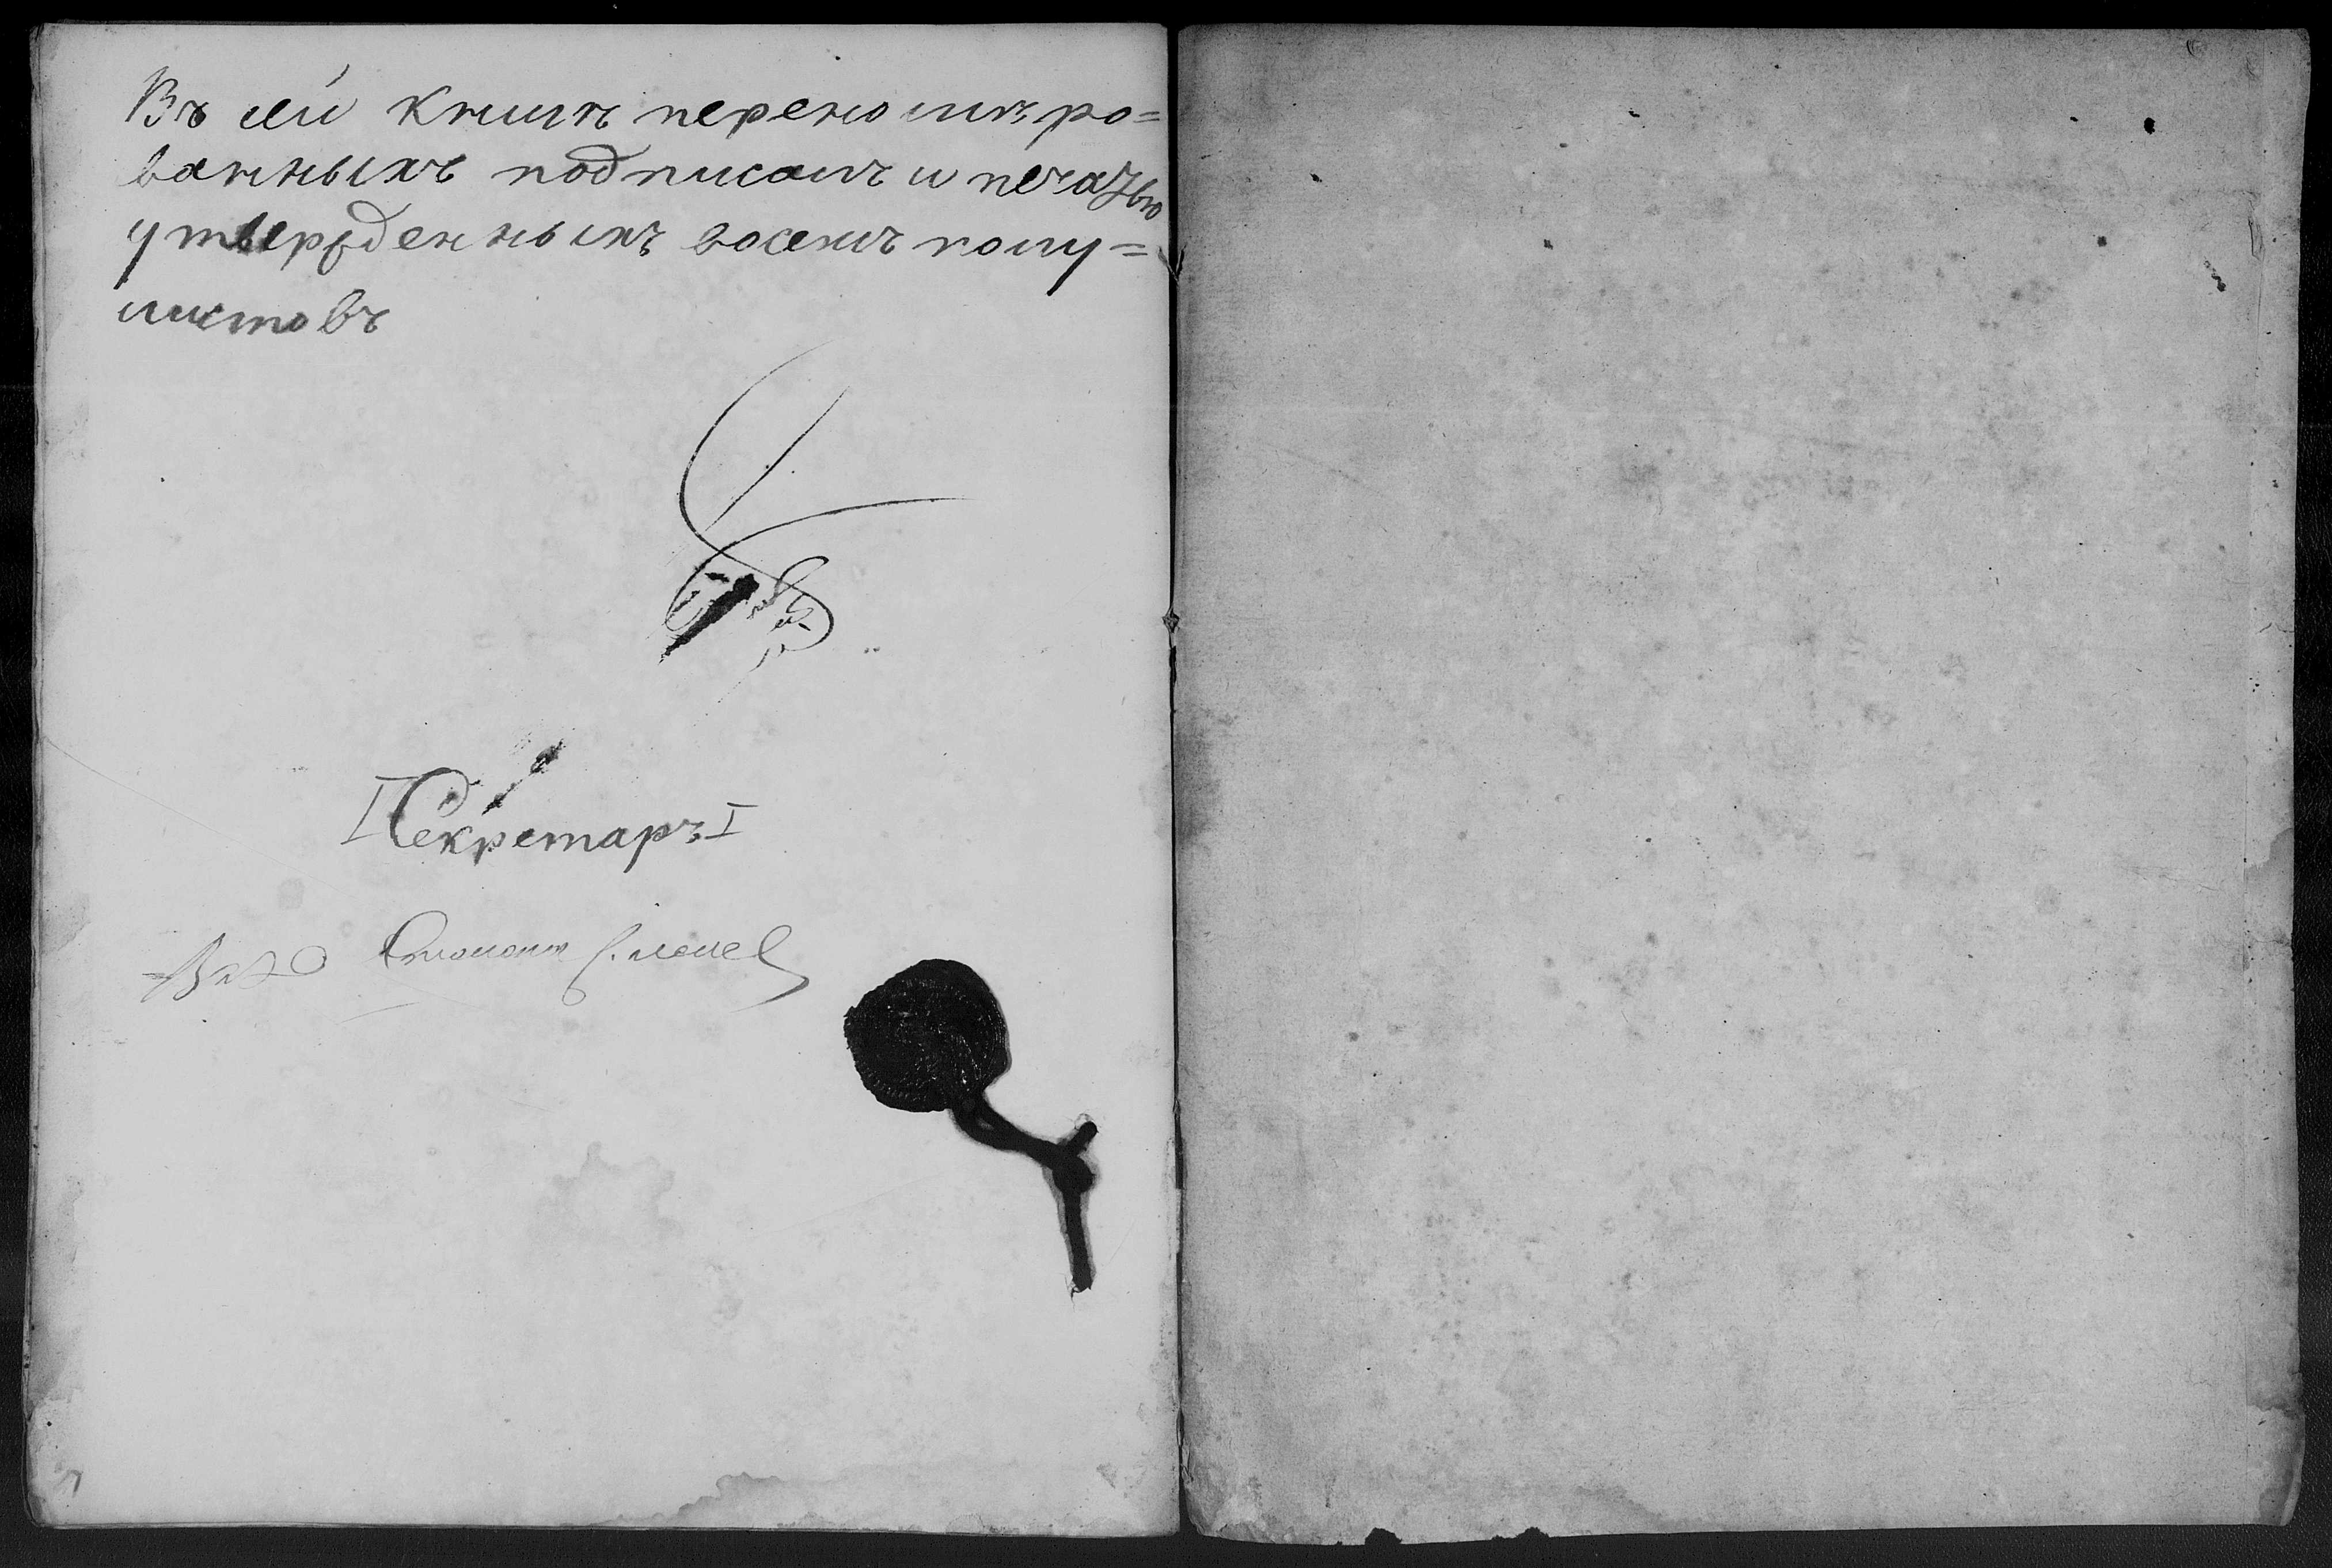 Въ сей книгѣ переномѣро=
ванныхъ подписомъ и печатью
утвержденныхъ восемъ полу=
листовъ
Секретарь